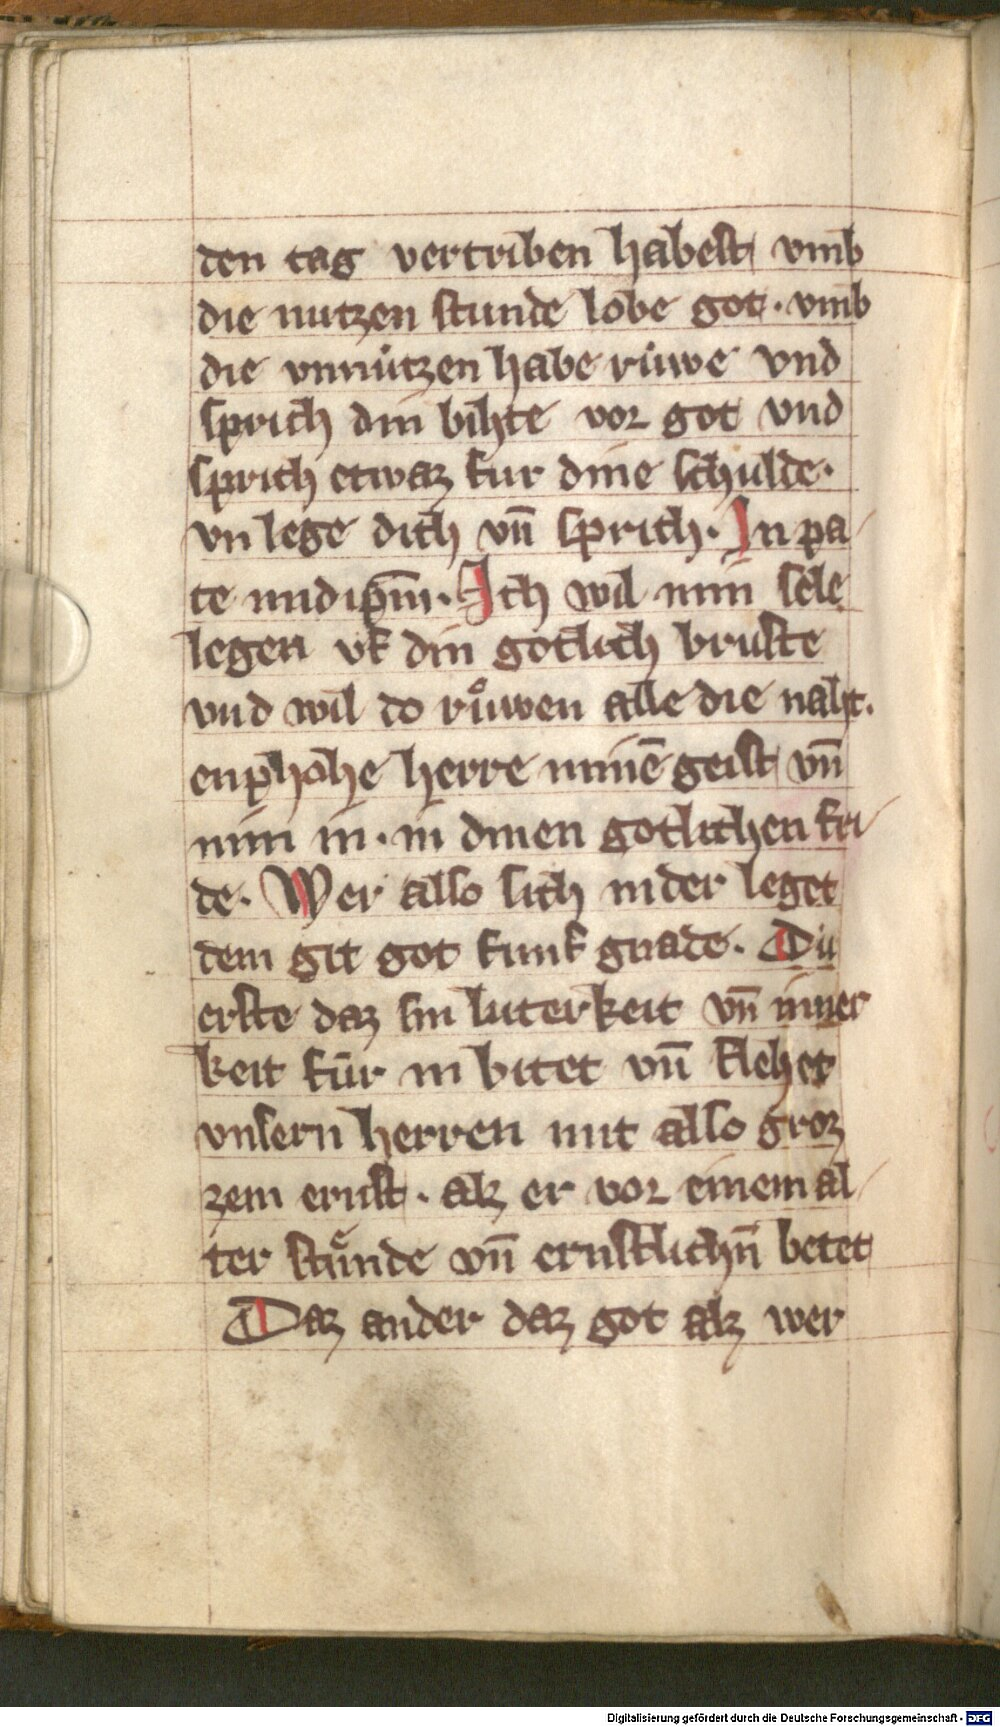 den tag vertriben habest vmb
die nutzen stunde lobe got · vmb
die vnnützen habe rüwe vnd
sprich din bihte vor got vnd
sprich etwaz fur dine schulde·
vn lege dich vn̄ sprich· In pa
te in id ip̄m· Ich wil min sele
legen vf din gotlich bruste
vnd wil do růwen alle die naht.
enphohe herre minē geist vn̄
nim in · in dinen gotlichen fri
de· Wer also sich nider leget
dem git got funf gnade· Dü
erste daz sin luterkeit vn̄ inner
keit für in bitet vn̄ flehet
vnsern herren mit also groz
zem ernst · alz er vor einem al
ter stünde vn̄ ernstlichn̄ betet
Daz ander daz got alz wer
Digitalisierung gefördert durch die Deutsche Forschungsgemeinschaft - DFG